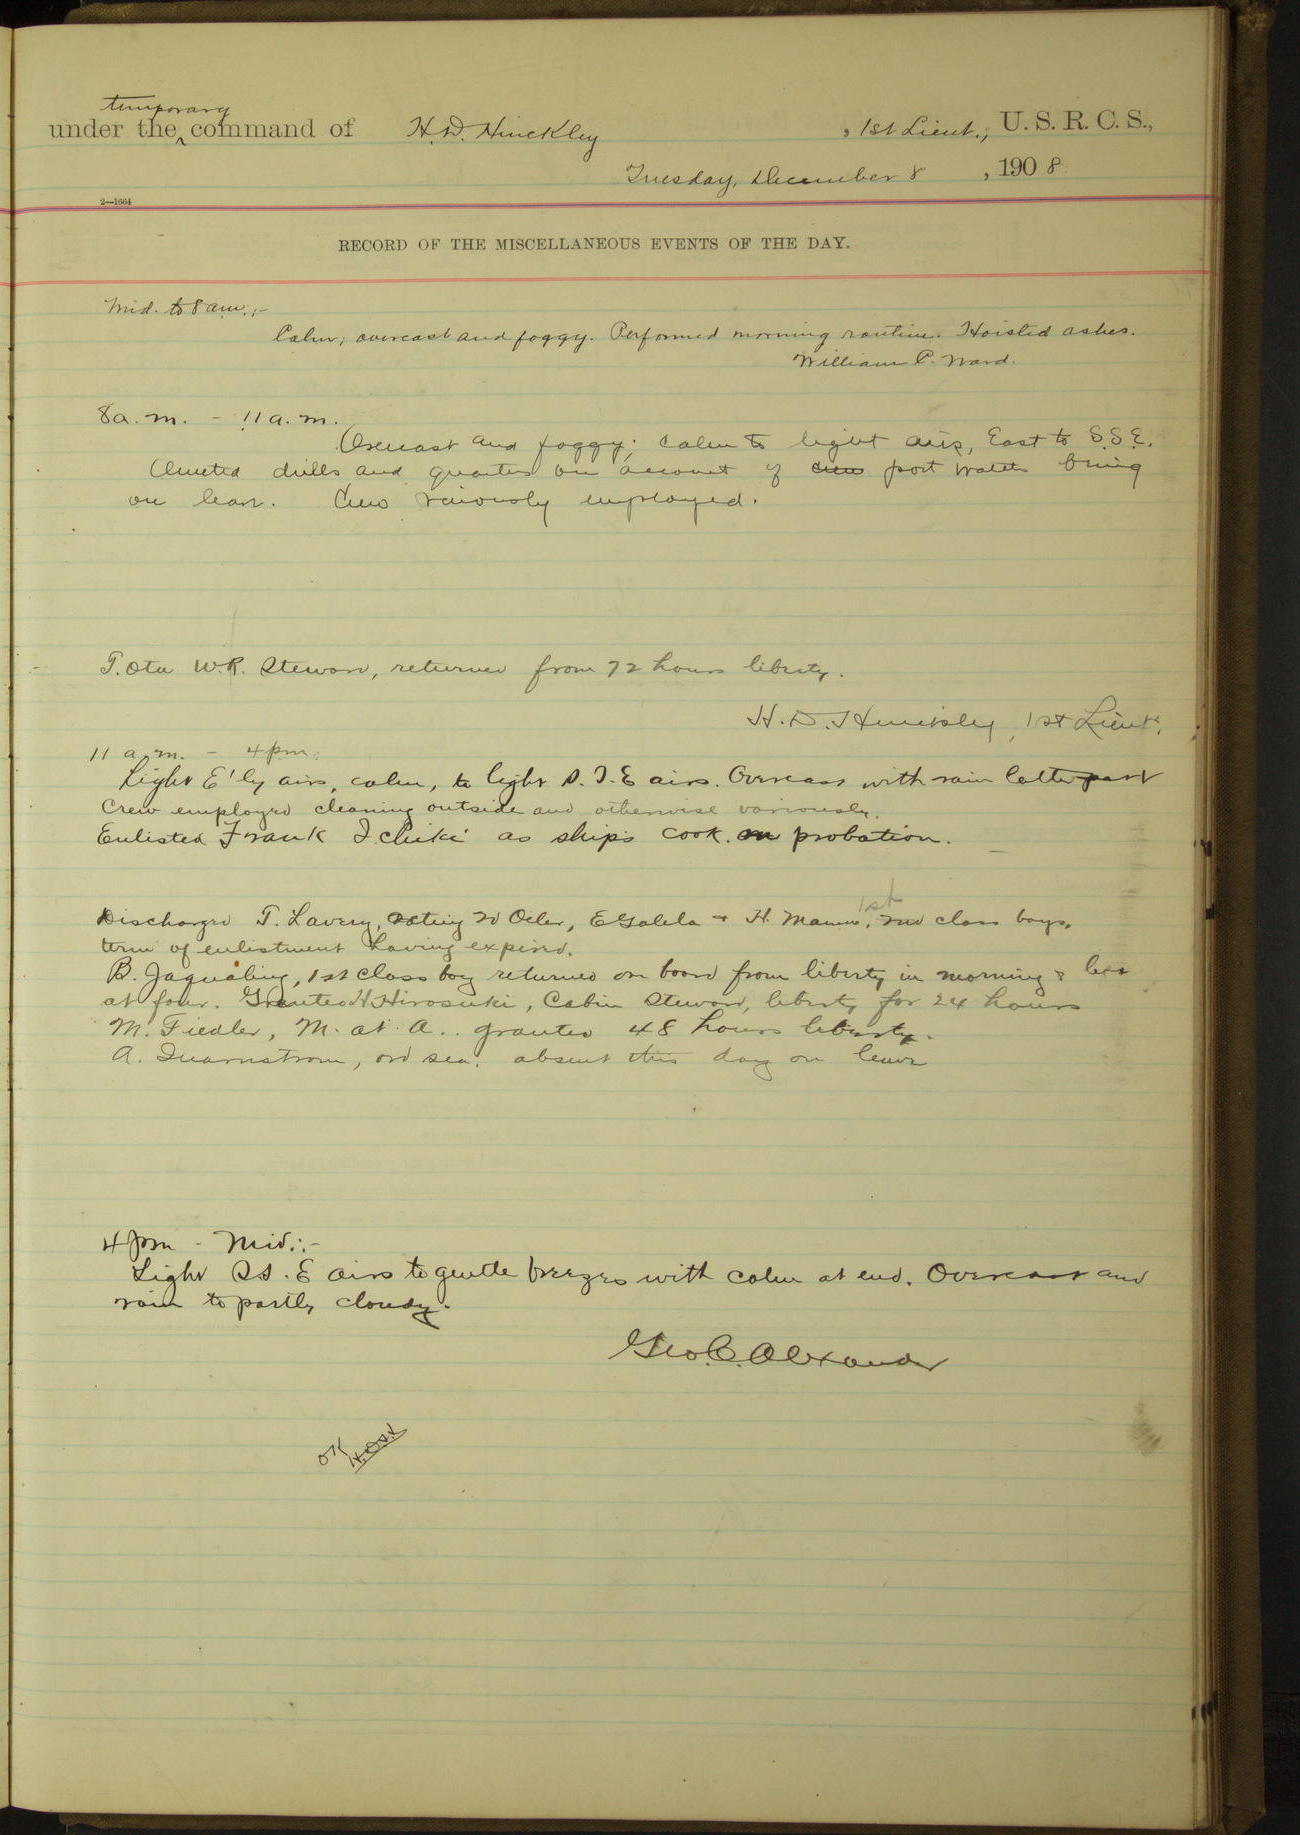 temporary
under the ^ command of H. D. Hinckley, 1st Lieut., U. S. R. C. S.,
Tuesday, December 8, 1908
2—1664
RECORD OF THE MISCELLANEOUS EVENTS OF THE DAY.
Mid. to 8 am.:-
Calm; overcast and foggy. Performed morning routine. Hoisted ashes.
William P. Ward.
8 a.m. - 11 a.m.
Overcast and foggy; calm to light airs, East to S.S.E.
Omitted drills and quarters on account of crew port watch being
on leave. Crew variously employed.
T. Ota W.R. Steward, returned from 72 hours liberty.
H. D. Hinckley, 1st Lieut.
11 a.m. - 4 pm:
Light E'ly airs, calm, to light S. S. E airs. Overcast with rain latter part
Crew employed cleaning outside and otherwise variously.
Enlisted Frank Ichiki as ships cook. on probation.
Discharged T. Lavery, acting W Oiler, E Galela + H. Mamro, 1st class boys,
term of enlistment having expired.
B. Jagualing, 1st class boy returned on board from liberty in morning & left
at four. Granted H. Hirosuki, Cabin Steward, liberty for 24 hours
M. Fiedler, M. at A.. granted 48 hours liberty.
A. Quarnstrom, ord sea. absent this day on leave
4 pm - Mid.:-
Light SS. E airs to gentle breezes with calm at end. Overcast and
rain to partly cloudy.
Geo. C. Alexander
OK
H.D.H